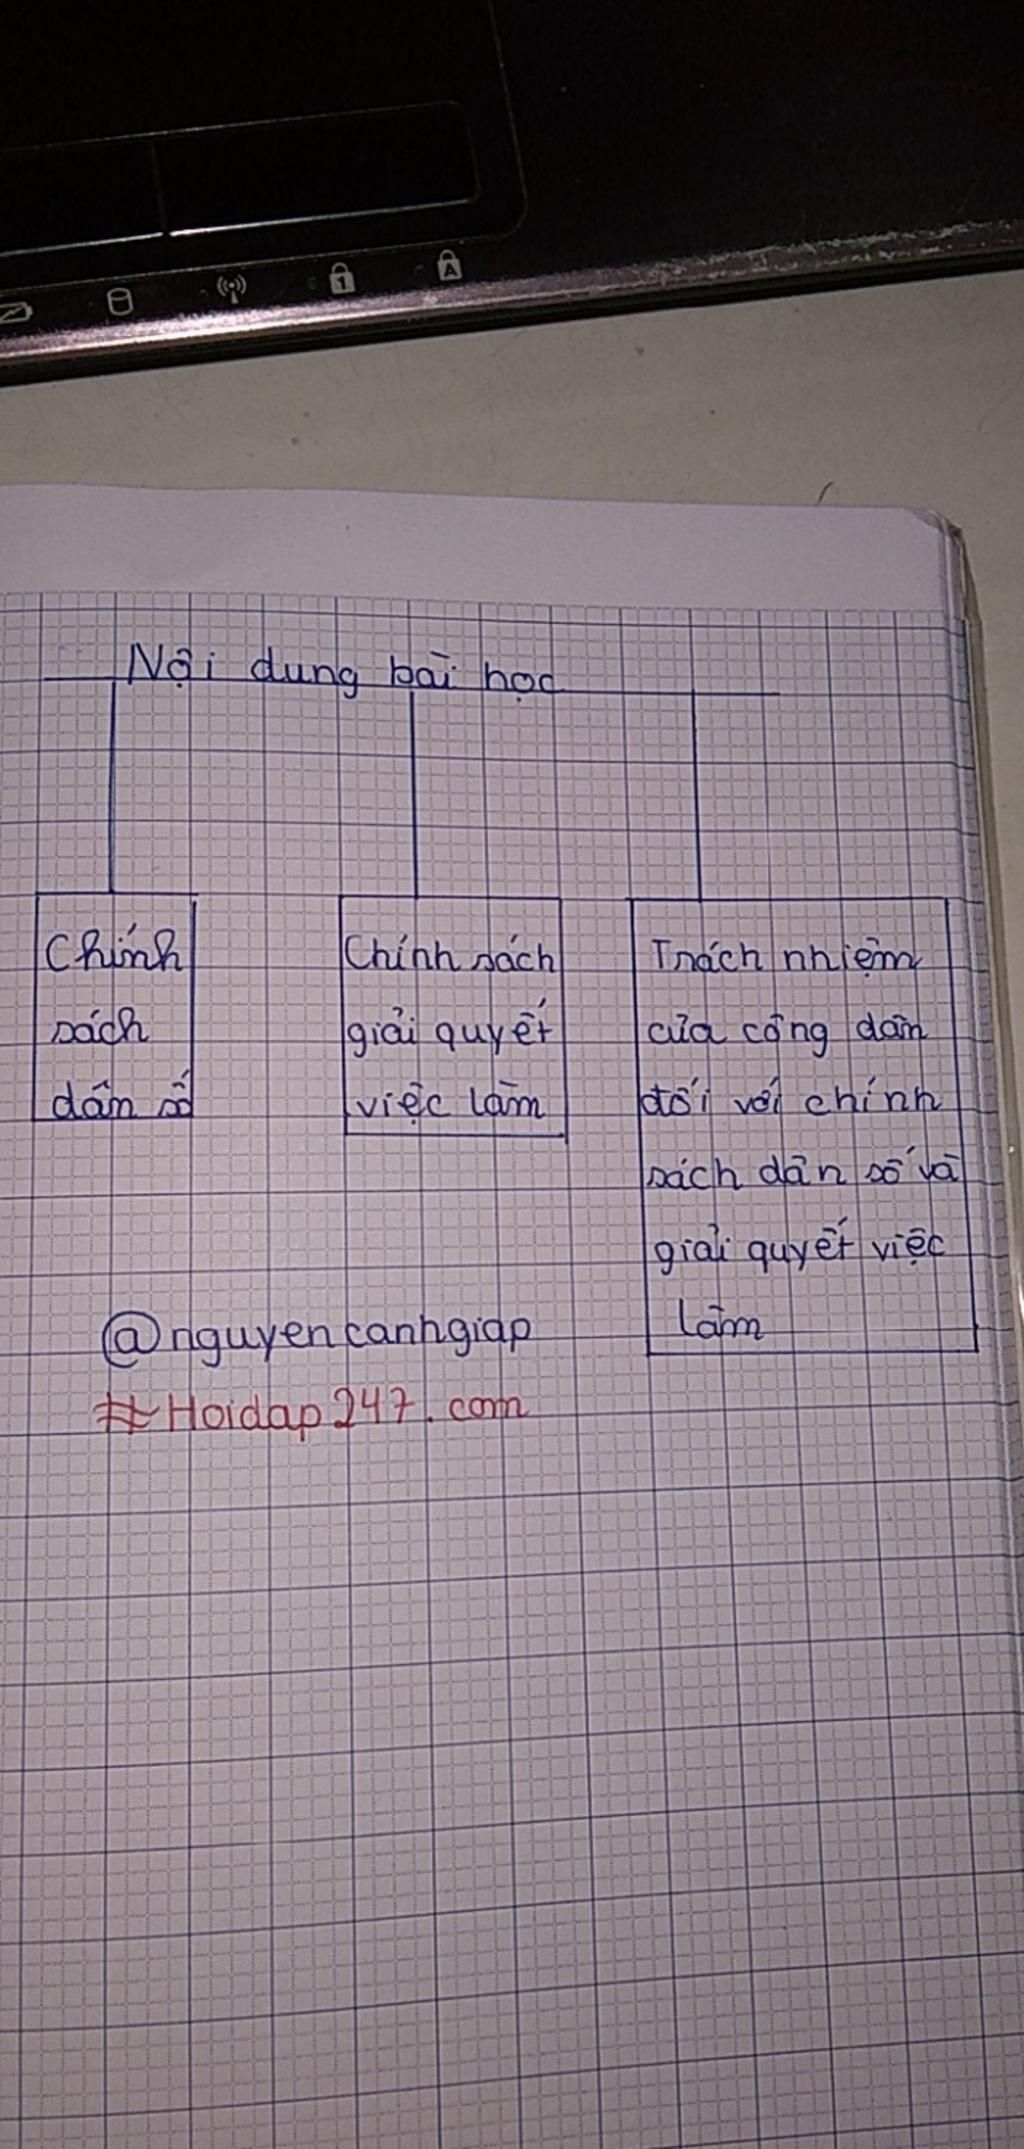 Nội dung bài học
Chính
sách
dân số
Chính sách
giải quyết
việc làm
Trách nhiệm
của công dân
đối với chính
sách dân số và
giải quyết việc
làm
@nguyencanhgiap
#Hoidap247.com